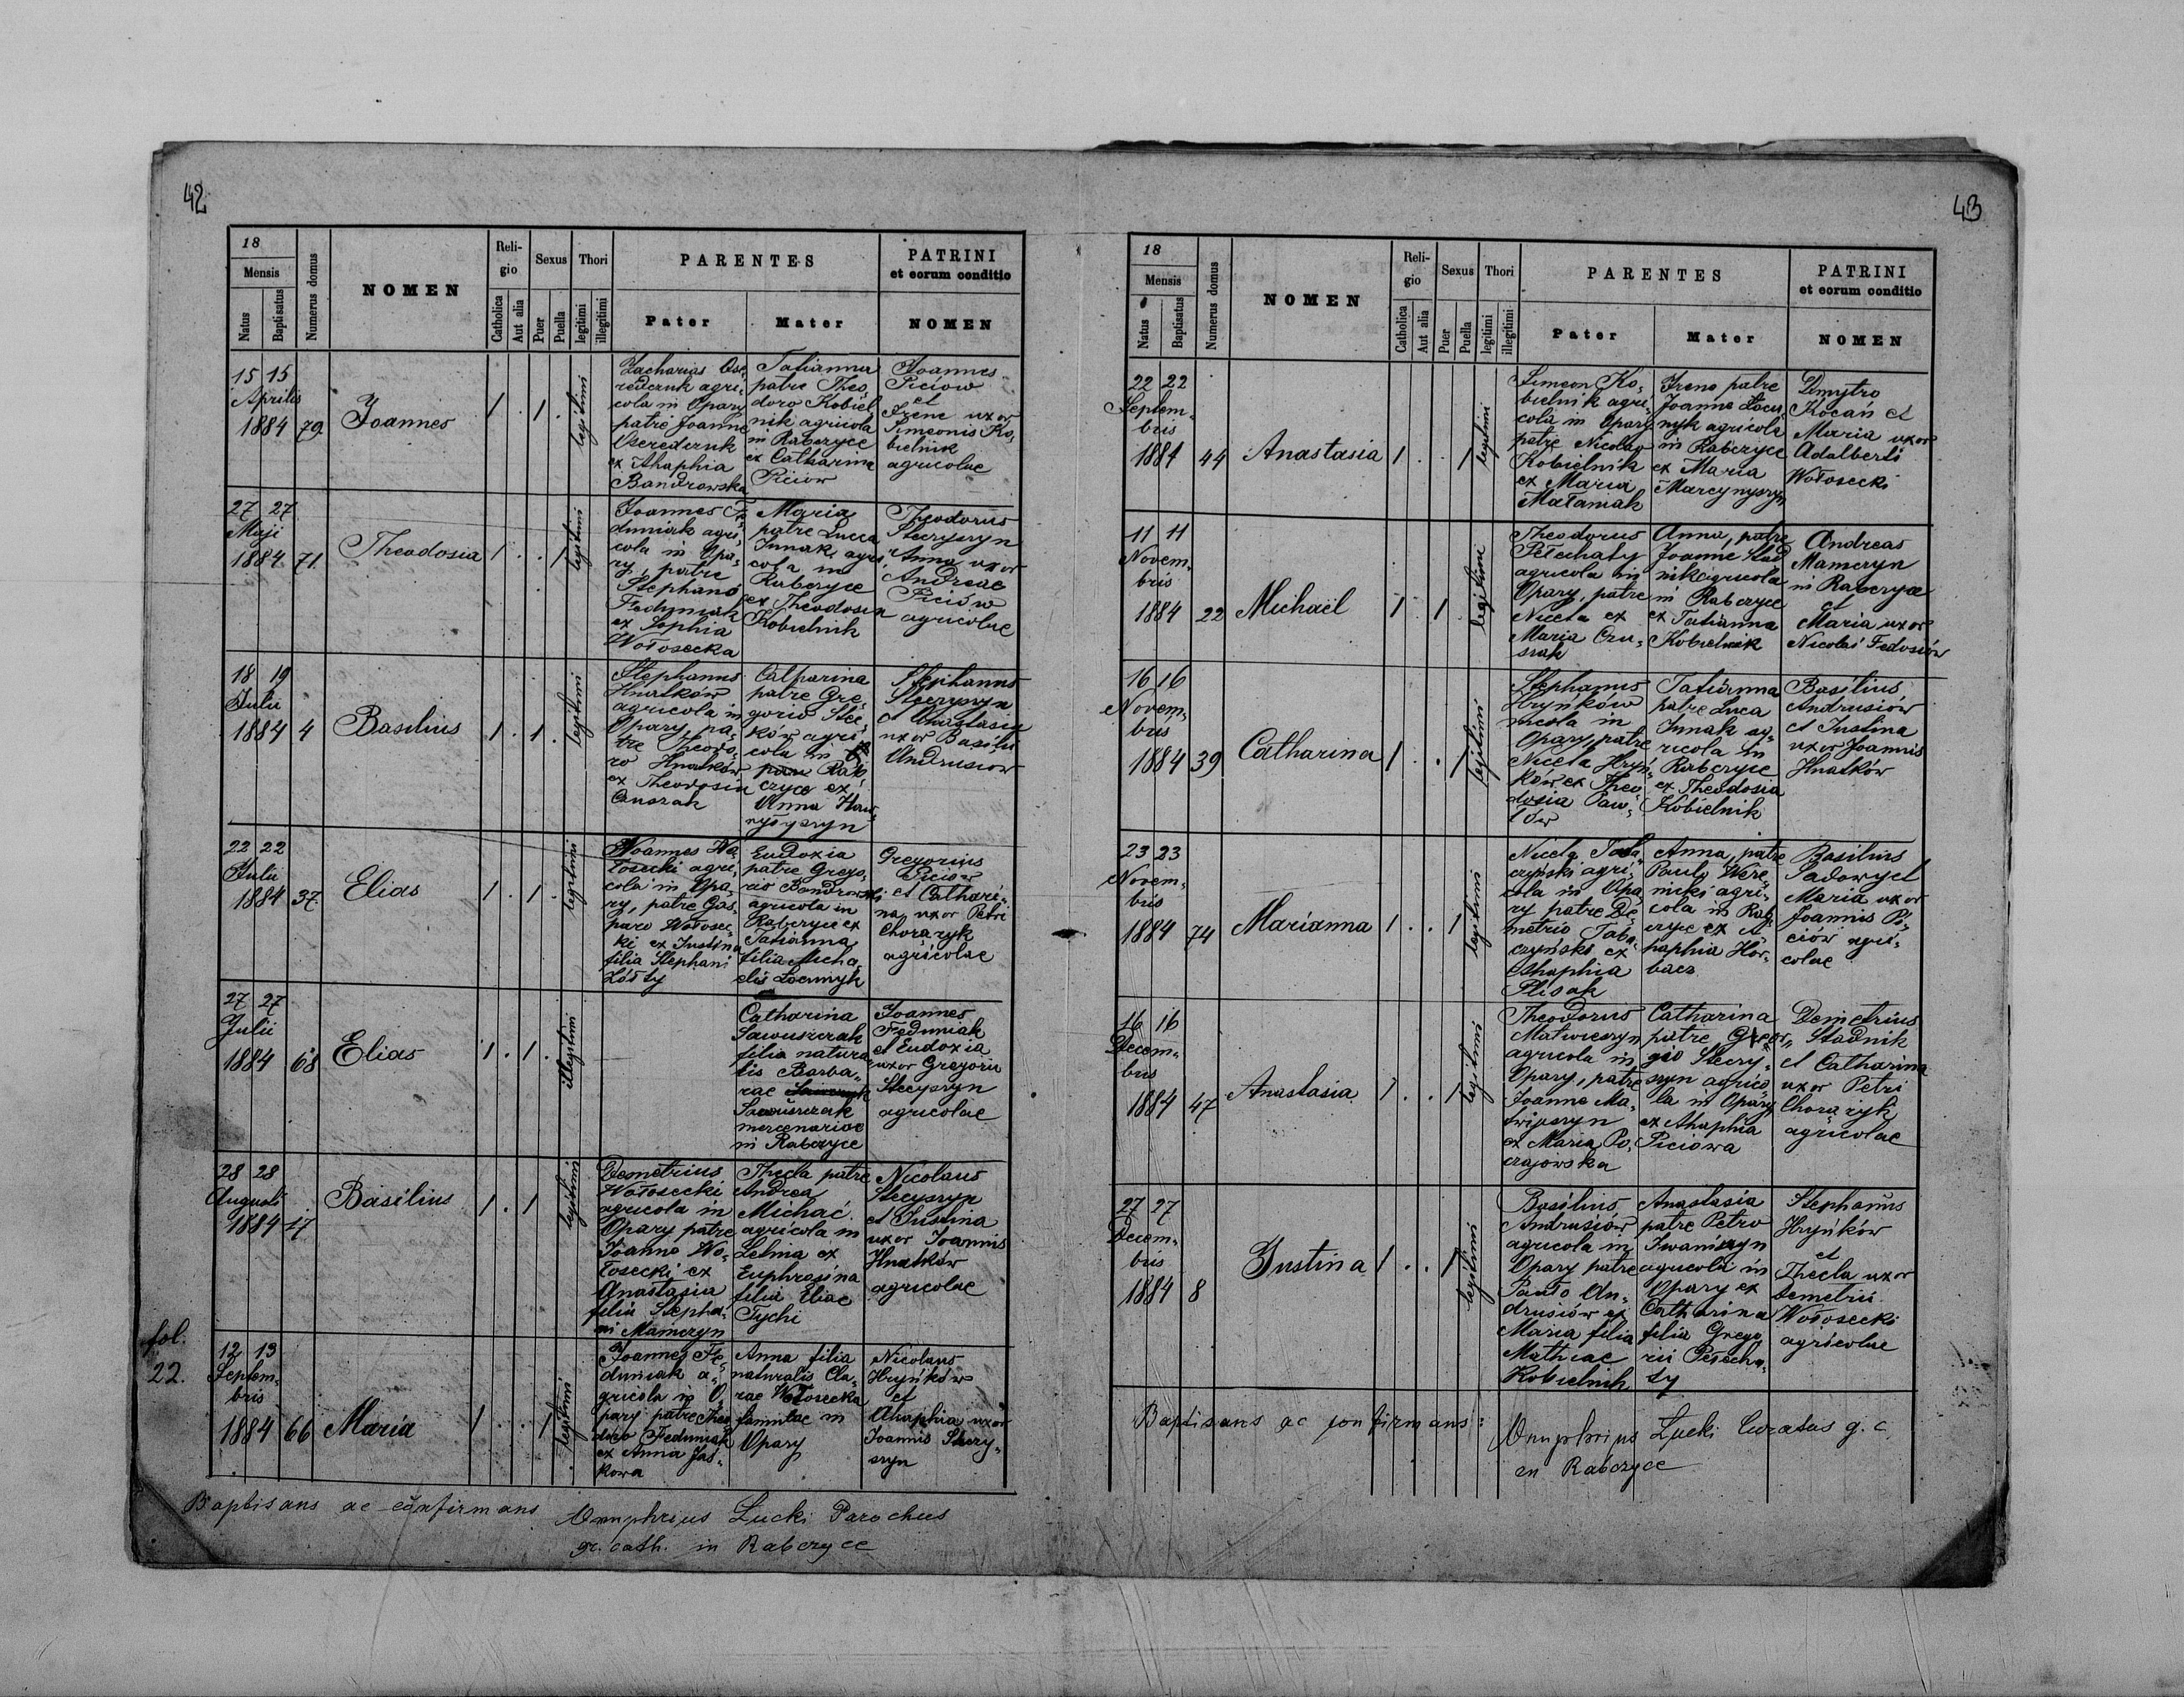 42
18
Mensis
Natus
Baptisatus
Numerus domus
NOMEN
Religio
Catholica
Aut alia
Sexus
Puer
Puella
Thori
legitimi
illegitimi
PARENTES
Pater
Mater
PATRINI
et eorum conditio
NOMEN
15 15
Aprilis
1884 79.
Joannes
1 . 1 .
legitimi
Zacharias Ose-
redczuk agri-
cola in Opary
patre Joanne
Oseredczuk
ex Ahaphia
Bandrowska
Tatianna
patre Theo
doro Kobiel
nik agricola
in Rabczyce
ex Catharina
Piciow
Joannes
Piciow
et
Irene uxor
Simeonis Ko-
bielnik
agricolae
27 27
Maji
1884 71.
Theodosia
1 . . 1
legitimi
Joannes Fe
duniak agri-
cola in Opa-
ry, patre
Stephano
Feduniak
ex Sophia
Wołosecka
Maria
patre Lucca
Junak agri-
cola in
Rabczyce
ex Theodosia
Kobielnik
Theodorus
Stecyszyn
Anna uxor
Andreae
Piciów
agricolae
18 19
Julii
1884 4
Basilius
1 . 1 .
legitimi
Stephanus
Hnatków
agricola in
Opary, pa-
tre Theodo-
ro Hnatków
ex Theodosia
Cauzak
Catharina
patre Gre-
gorio Stec-
ków agri-
cola in
Rab-
czyce ex
Anna
Stephanus
Stecyszyn
et Anastasia
uxor Basilii
Andrusiow
22 22
Julii
1884 37.
Elias
1 . 1 .
legitimi
Joannes Wo-
łosecki agri-
cola in Opa-
ry, patre Gas-
paro Wołosec-
ki ex Justina
filia Stephani
Zółty
Eudoxia
patre Grego-
rio Bandrowski
agricola in
Rabczyce ex
Tatianna
filia Micha-
elis Locunyk
Gregorius
Piciow
et Cathari-
na uxor Petri
Chorazyk
agricolae
27 27
Julii
1884 68
Elias
1 . 1 .
illegitimi
Catharina
Sawuszczak
filia natura-
lis Barba-
rae
Sawuszczak
mercenariae
in Rabczyce
Joannes
Feduniak
et Eudoxia
uxor Gregorii
Stecyszyn
agricolae
28 28
Augusti
1884 17
Basilius
1 . 1
legitimi
Demetrius
Wołosecki
agricola in
Opary patre
Joanne Wo-
łosecki ex
Anastasia
filia Stepha-
ni Mamczyn
Thecla patre
Andrea
Michać
agricola in
Letnia ex
Euphrosina
filia Eliae
Tychi
Nicolaus
Stecyszyn
et Justina
uxor Joannis
Hnatków
agricolae
fol.
22.
12 13
Septem-
bris
1884 66
Maria
1 . . 1
legitimi
Joannes Fe-
duniak a-
gricola in O-
pary patre Theo
doro Feduniak
ex Anna Jas-
kowa
Anna filia
naturalis Cla-
rae Wołosecka
famulae in
Opary
Nicolaus
Hrynków
et
Ahaphia uxor
Joannis Stecy-
szyn
Baptisans ac confirmans Onuphrius Łucki Parochus
gr. cath. in Rabczyce
43
18
Mensis
Natus
Baptisatus
Numerus domus
NOMEN
Religio
Catholica
Aut alia
Sexus
Puer
Puella
Thori
legitimi
illegitimi
PARENTES
Pater
Mater
PATRINI
et eorum conditio
NOMEN
22 22
Septem-
bris
1884 44
Anastasia
1 . . 1
legitimi
Simeon Ko-
bielnik agri-
cola in Opary
patre Nicolao
Kobielnik
ex Maria
Małaniak
Irene patre
Joanne Locu-
nyk agricola
in Rabczyce
ex Maria
Marcynyszyn
Dmytro
Kocań et
Maria uxor
Adalberti
Wołosecki
11 11
Novem-
bris
1884 22
Michael
1 . 1
legitimi
Theodorus
Pełechaty
agricola in
Opary, patre
Niceta ex
Maria Czu-
szak
Anna, patre
Joanne Stad
nik agricola
in Rabczyce
ex Tatianna
Kobielnik
Andreas
Mamczyn
in Rabczyce
et
Maria uxor
Nicolai Fedosiów
16 16
Novem-
bris
1884 39
Catharina
1 . . 1
legitimi
Stephanus
Hrynków
incola in
Opary, patre
Niceta Hryń-
ków ex Theo
dosia Paw-
lów
Tatianna
patre Luca
Junak ag-
ricola in
Rabczyce
ex Theodosia
Kobielnik
Basilius
Andrusiów
et Justina
uxor Joannis
Hnatków
23 23
Novem-
bris
1884 74
Marianna
1 . . 1
legitimi
Niceta Taba-
czyński agri-
cola in Opa
ry patre De-
metrio Taba-
czyński ex
Ahaphia
Plisak
Anna, patre
Paulo Were-
nicki agri-
cola in Rab-
czyce ex A-
haphia Hor-
bacz
Basilius
Sadowy et
Maria uxor
Joannis Pi-
ciów agri-
colae
16 16
Decem-
bris
1884 47
Anastasia
1 . . 1
legitimi
Theodorus
Matwiczyn
agricola in
Opary, patre
Joanne Ma-
twijczyn
ex Maria Po-
czajowska
Catharina
patre Grego-
rio Stecy-
szyn agrico
la in Opary
ex Ahaphia
Piciowa
Demetrius
Stadnik
et Catharina
uxor Petri
Choraży̨k
agricolae
27 27
Decem-
bris
1884 8
Justina
1 . . 1
legitimi
Basilius
Andrusiów
agricola in
Opary patre
Pauło An-
drusiów ex
Maria filia
Mathiae
Kobielnik
Anastasia
patre Petro
Iwaniszyn
agricola in
Opary ex
Catharina
filia Grego
rii Pełecha-
ty
Stephanus
Hrynków
et
Thecla uxor
Demetrii
Wołosecki
agricolae
Baptisans ac confirmans: Onuphrius Łucki Curatus g. c.
in Rabczyce